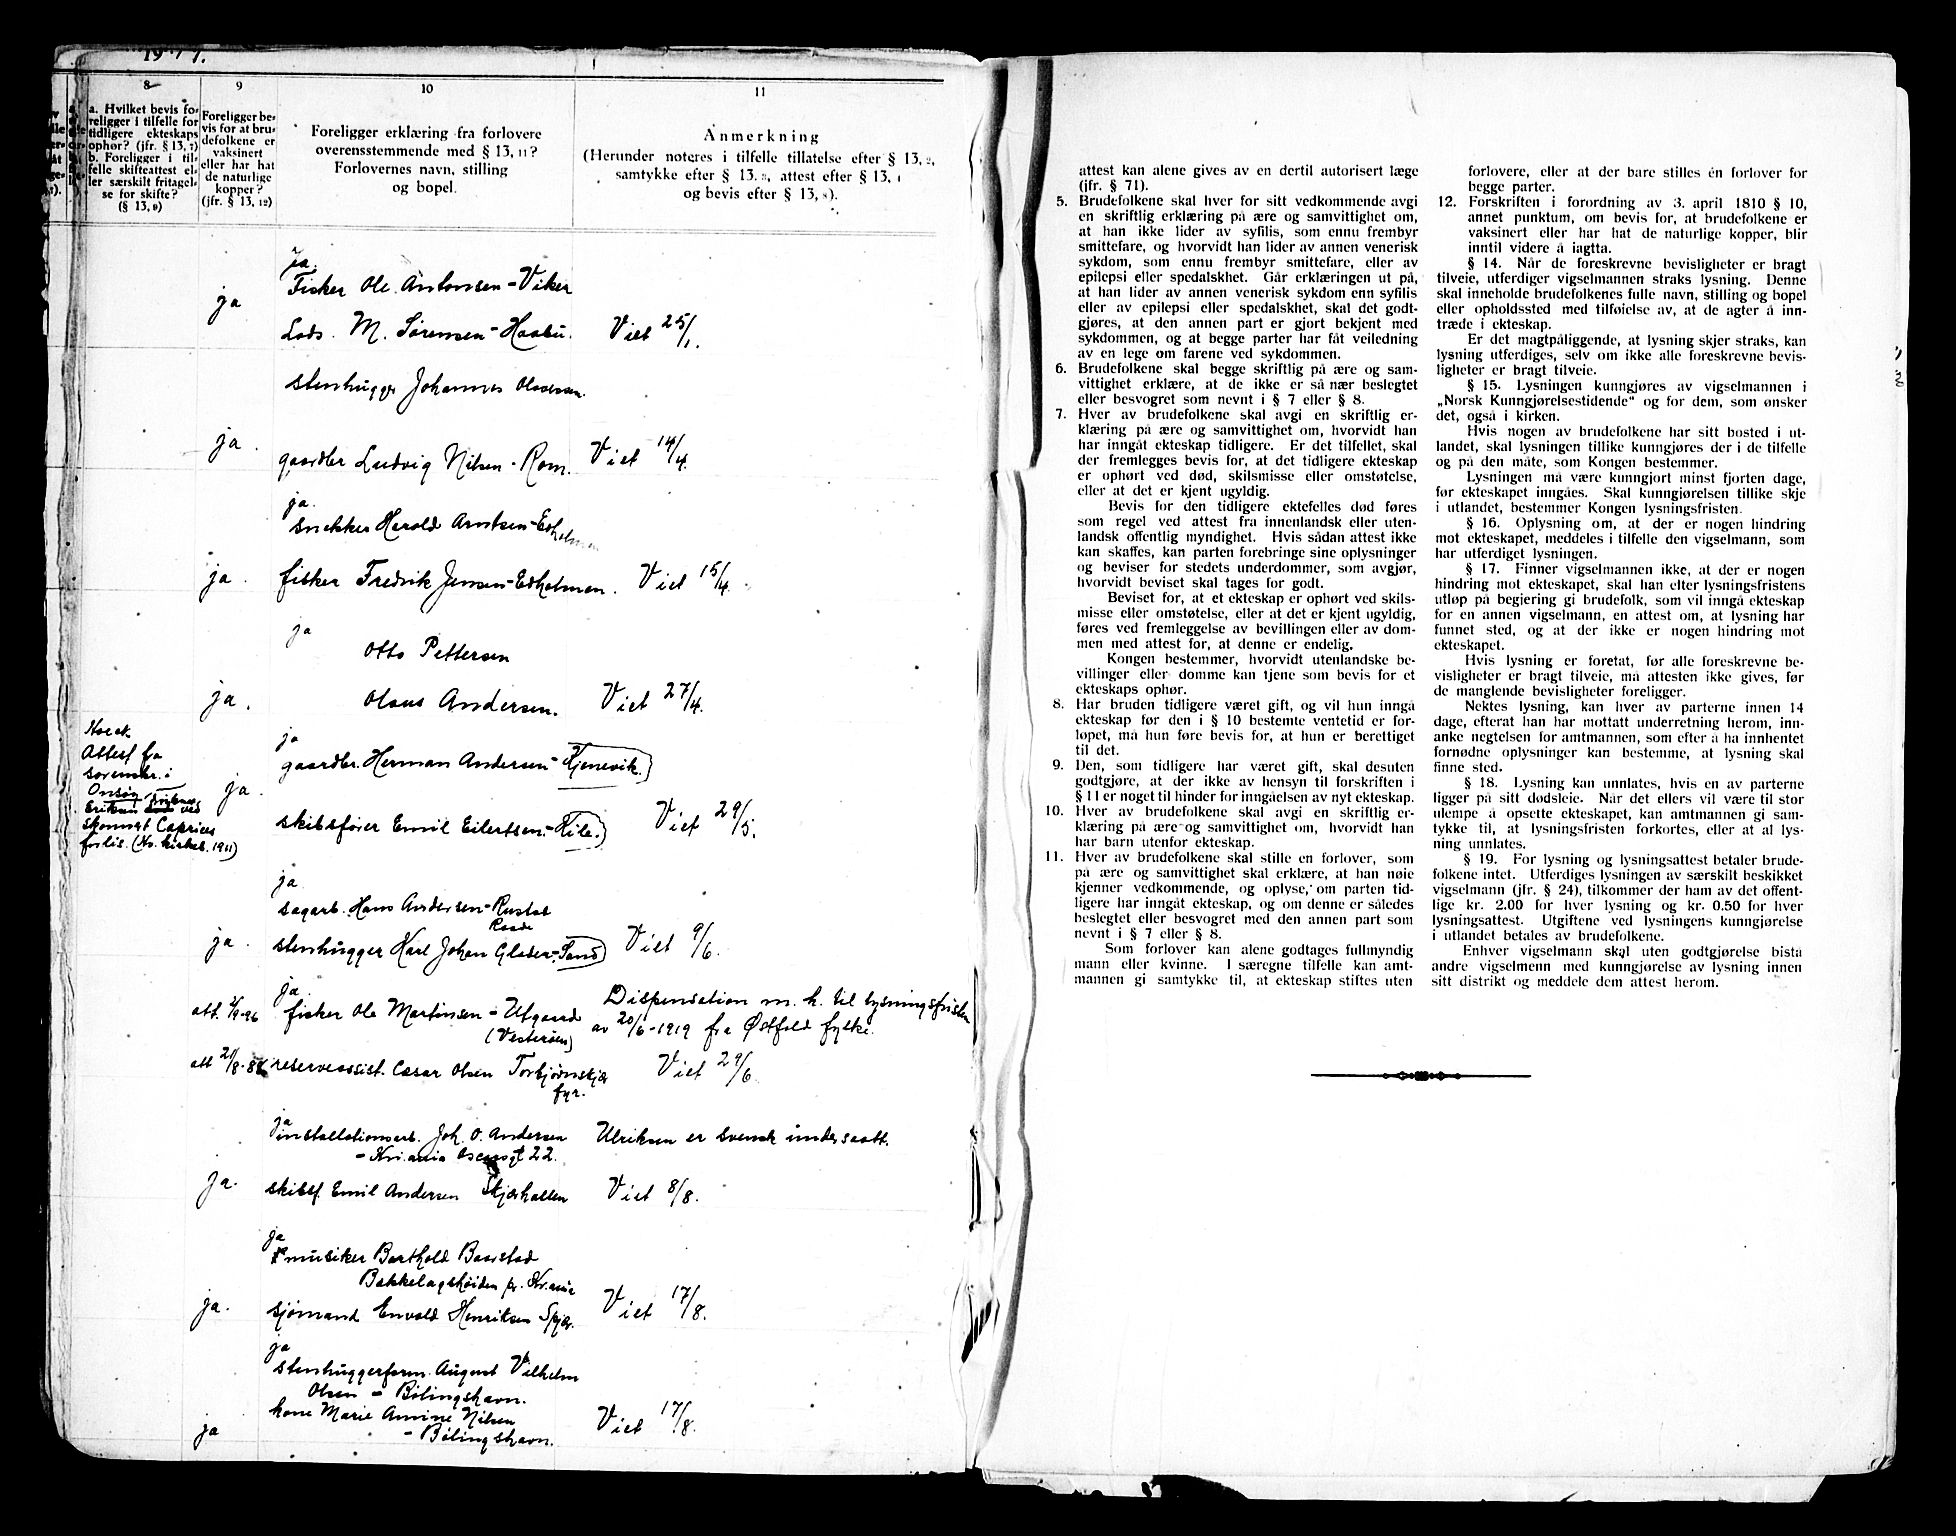 8
9
10
11
a. Hvilket bevis fo-
religger i tilfelle for
tidligere ekteskaps
ophør? (jfr. § 13, 7)
b. Foreligger i til-
felle skifteattest el-
ler særskilt fritagel-
se for skifte?
(§ 13, 9)
Foreligger be-
vis for at bru-
defolkene er
vaksinert
eller har hat
de naturlige
kopper?
(jfr. § 13, 12)
Foreligger erklæring fra forlovere
overensstemmende med § 13, 11?
Forlovernes navn, stilling
og bopel.
Anmerkning
(Herunder noteres i tilfelle tillatelse efter § 13, 2,
samtykke efter § 13. 3, attest efter § 13, 4
og bevis efter § 13, 8).
ja
Fisker Ole Antonsen - Viker
ja
Lods. M. Sørensen - Haabu.
Viet 25/1.
stenhugger Johannes Olavesen.
ja.
gaardbr Ludvig Nilsen - Rom.
Viet 14/4.
ja.
snekker Harald Arntsen - Edholmen
ja.
fisker Fredrik Jensen - Edholmen.
Viet 15/4.
ja
Otto Pettersen
ja.
Olaus Andersen.
Viet 27/4.
Attest fra
sorenskr. i
Onsøy
Eriksen ved
forlis. (No. kirkeb. 1911)
ja
gaardbr. Herman Andersen - Kjenevik.
ja.
skibsfører Emil Eilertsen - Kile.
Viet 29/5.
ja
sagarb. Hans Andersen - Rustad
Raade
ja.
stenhugger Karl Johan Glader - Sand
Viet 9/6.
ja
fisker Ole Martinsen - Utgaard
(Vesterøen)
att. 2/9-96
Dispensation m. h. til lysningsfristen
av 20/6-1919 fra Østfold fylke.
att 21/8-88
reserveassist. Cæsar Olsen Torbjørnskjær
fyr.
Viet 29/6.
ja
installationsarb. Joh. O. Andersen
- Kr.ania Oscarsgt 22.
Ulriksen er svensk undersaatt.
ja.
skibsf. Emil Andersen Skjærhallen
Viet 8/8.
ja
musiker Barthold Baarstad
Bækkelagshøiden pr. Kr.ania
ja.
sjømand Envald Henriksen Spjær.
Viet 17/8.
ja
stenhuggerform. August Vilhelm
Olsen - Bølingshavn.
kone Marie Amine Nilsen
- Bølingshavn.
ja
Viet 17/8.
attest kan alene gives av en dertil autorisert læge
(jfr. § 71).
5. Brudefolkene skal hver for sitt vedkommende avgi
en skriftlig erklæring på ære og samvittighet om,
at han ikke lider av syfilis, som ennu frembyr
smittefare, og hvorvidt han lider av annen venerisk
sykdom, som ennu frembyr smittefare, eller av
epilepsi eller spedalskhet. Går erklæringen ut på,
at han lider av annen venerisk sykdom enn syfilis
eller av epilepsi eller spedalskhet, skal det godt-
gjøres, at den annen part er gjort bekjent med
sykdommen, og at begge parter har fåt veiledning
av en lege om farene ved sykdommen.
6. Brudefolkene skal begge skriftlig på ære og sam-
vittighet erklære, at de ikke er så nær beslegtet
eller besvogret som nevnt i § 7 eller § 8.
7. Hver av brudefolkene skal avgi en skriftlig er-
klæring på ære og samvittighet om, hvorvidt han
har inngåt ekteskap tidligere. Er det tilfellet, skal
der fremlegges bevis for, at det tidligere ekteskap
er ophørt ved død, skilsmisse eller omstøtelse,
eller at det er kjent ugyldig.
Bevis for den tidligere ektefelles død føres
som regel ved attest fra innenlandsk eller uten-
landsk offentlig myndighet. Hvis sådan attest ikke
kan skaffes, kan parten forebringe sine oplysninger
og beviser for stedets underdommer, som avgjør,
hvorvidt beviset skal tages for godt.
Beviset for, at et ekteskap er ophørt ved skils-
misse eller omstøtelse, eller at det er kjent ugyldig,
føres ved fremleggelse av bevillingen eller av dom-
men med attest for, at denne er endelig.
Kongen bestemmer, hvorvidt utenlandske be-
villinger eller domme kan tjene som bevis for et
ekteskaps ophør.
8. Har bruden tidligere været gift, og vil hun inngå
ekteskap før den i § 10 bestemte ventetid er for-
løpet, må hun føre bevis for, at hun er berettiget
til det.
9. Den, som tidligere har været gift, skal desuten
godtgjøre, at der ikke av hensyn til forskriften i
§ 11 er noget til hinder for inngåelsen av nyt ekteskap.
10. Hver av brudefolkene skal avgi en skriftlig er-
klæring på ære og samvittighet om, hvorvidt han
har barn utenfor ekteskap.
11. Hver av brudefolkene skal stille en forlover, som
på ære og samvittighet skal erklære, at han nøie
kjenner vedkommende, og oplyse, om parten tid-
ligere har inngåt ekteskap, og om denne er således
beslegtet eller besvogret med den annen part som
nevnt i § 7 eller § 8.
Som forlover kan alene godtages fullmyndig
mann eller kvinne. I særegne tilfelle kan amt-
mannen gi samtykke til, at ekteskap stiftes uten
forlovere, eller at der bare stilles én forlover for
begge parter.
12. Forskriften i forordning av 3. april 1810 § 10,
annet punktum, om bevis for, at brudefolkene er
vaksinert eller har hat de naturlige kopper, blir
inntil videre å iagtta.
§ 14. Når de foreskrevne bevisligheter er bragt
tilveie, utferdiger vigselmannen straks lysning. Denne
skal inneholde brudefolkenes fulle navn, stilling og bopel
eller opholdssted med tilføielse av, at de agter å inn-
træde i ekteskap.
Er det magtpåliggende, at lysning skjer straks, kan
lysning utferdiges, selv om ikke alle foreskrevne bevis-
ligheter er bragt tilveie.
§ 15. Lysningen kunngjøres av vigselmannen i
„Norsk Kunngjørelsestidende“ og for dem, som ønsker
det, også i kirken.
Hvis nogen av brudefolkene har sitt bosted i ut-
landet, skal lysningen tillike kunngjøres der i de tilfelle
og på den måte, som Kongen bestemmer.
Lysningen må være kunngjort minst fjorten dage,
før ekteskapet inngåes. Skal kunngjørelsen tillike skje
i utlandet, bestemmer Kongen lysningsfristen.
§ 16. Oplysning om, at der er nogen hindring
mot ekteskapet, meddeles i tilfelle den vigselmann, som
har utferdiget lysningen.
§ 17. Finner vigselmannen ikke, at der er nogen
hindring mot ekteskapet, skal han efter lysningsfristens
utløp på begjering gi brudefolk, som vil inngå ekteskap
for en annen vigselmann, en attest om, at lysning har
funnet sted, og at der ikke er nogen hindring mot
ekteskapet.
Hvis lysning er foretat, før alle foreskrevne be-
visligheter er bragt tilveie, må attesten ikke gives, før
de manglende bevisligheter foreligger.
Nektes lysning, kan hver av parterne innen 14
dage, efterat han har mottatt underretning herom, inn-
anke negtelsen for amtmannen, som efter å ha innhentet
fornødne oplysninger kan bestemme, at lysning skal
finne sted.
§ 18. Lysning kan unnlates, hvis en av parterne
ligger på sitt dødsleie. Når det ellers vil være til stor
ulempe å opsette ekteskapet, kan amtmannen gi sam-
tykke til, at lysningsfristen forkortes, eller at al lys-
ning unnlates.
§ 19. For lysning og lysningsattest betaler brude-
folkene intet. Utferdiges lysningen av særskilt beskikket
vigselmann (jfr. § 24), tilkommer der ham av det offent-
lige kr. 2.00 for hver lysning og kr. 0.50 for hver
lysningsattest. Utgiftene ved lysningens kunngjørelse
i utlandet betales av brudefolkene.
Enhver vigselmann skal uten godtgjørelse bistå
andre vigselmenn med kunngjørelse av lysning innen
sitt distrikt og meddele dem attest herom.